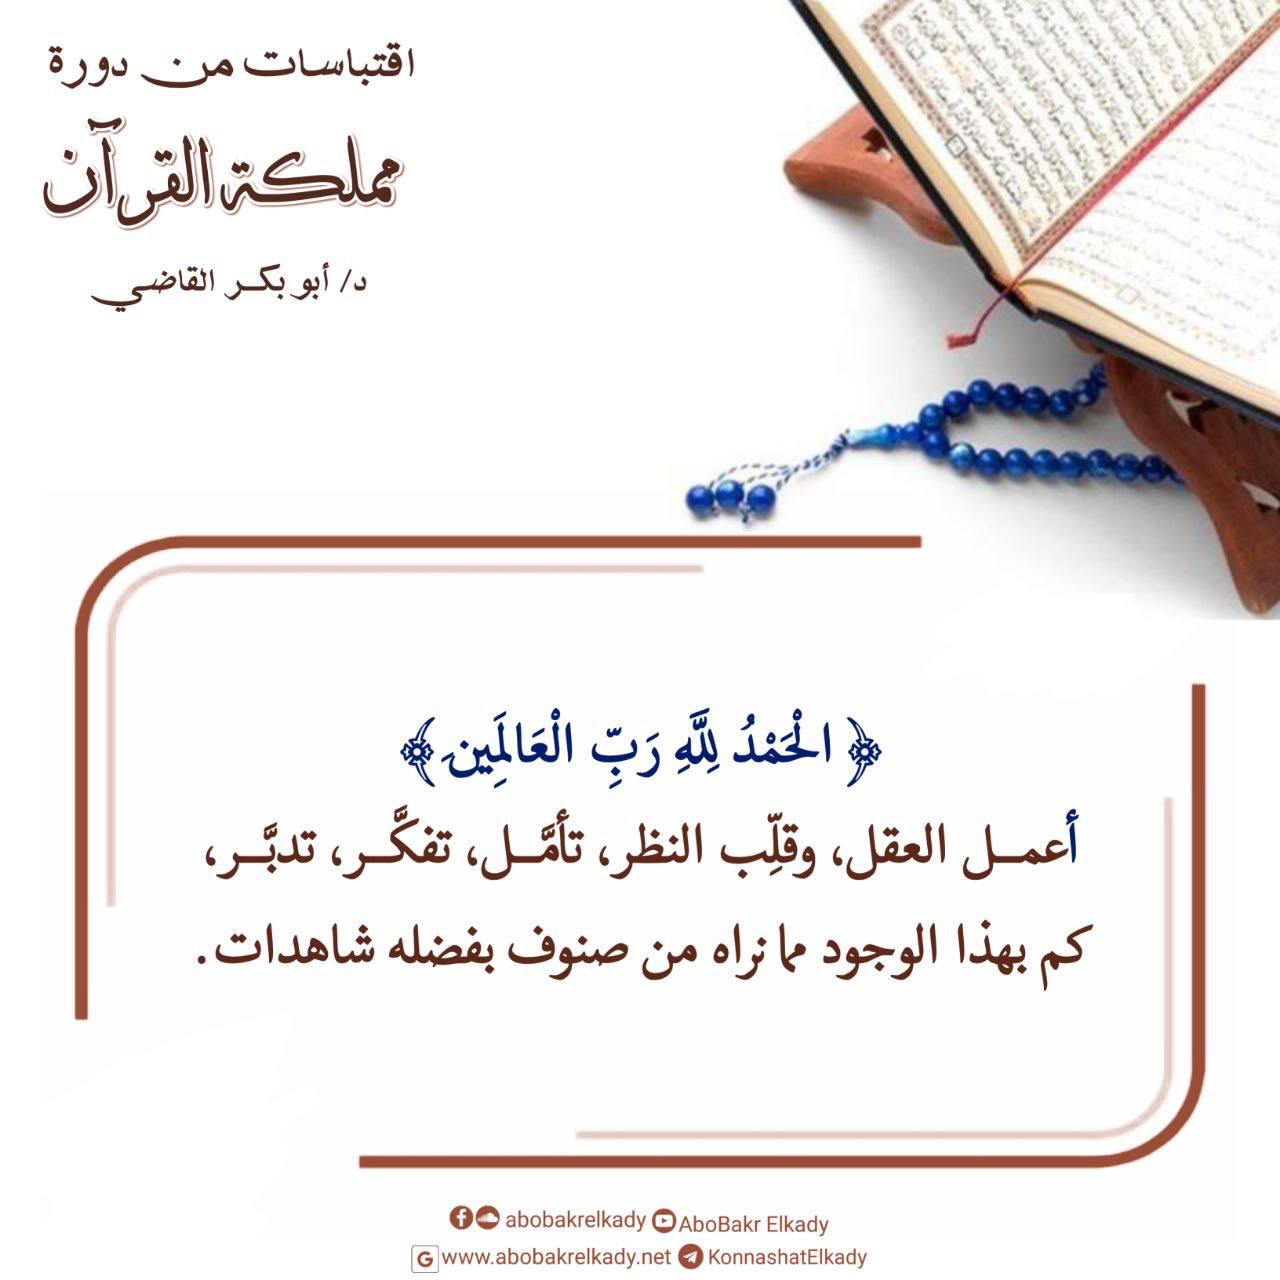 اقتباسات من دورة
مملكة القرآن
د/ أبو بكر القاضي
﴿ الْحَمْدُ لِلَّهِ رَبِّ الْعَالَمِينَ ﴾
أعمل العقل، وقلِّب النظر، تأمَّل، تفكَّر، تدبَّر،
كم بهذا الوجود مما نراه من صنوف بفضله شاهدات.
abobakrelkady AboBakr Elkady
www.abobakrelkady.net KonnashatElkady